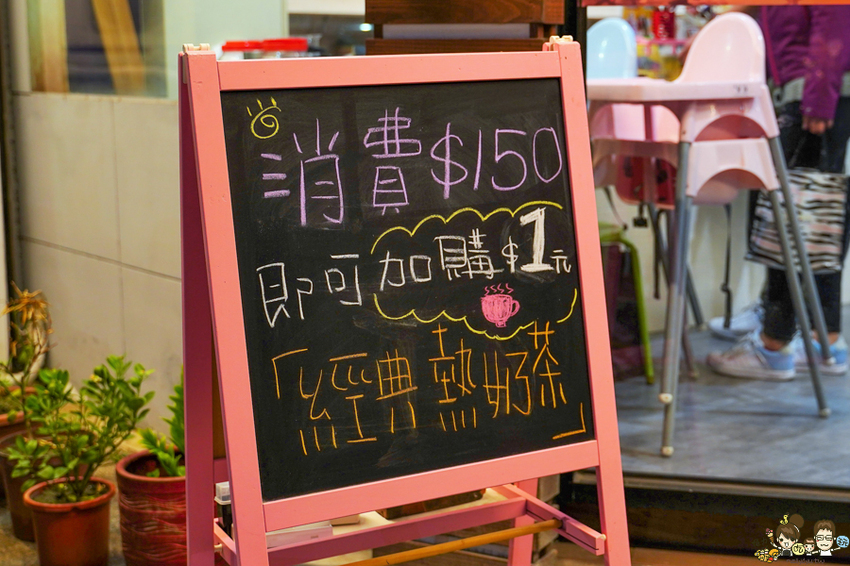 消費$150
即可加購$1元
「經典熱奶茶」